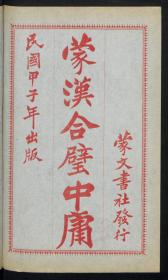 蒙文書社發行
蒙漢合璧中庸
民國甲子年出版